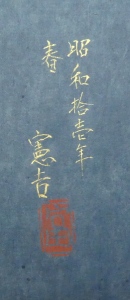 昭和拾壱年
春
憲吉